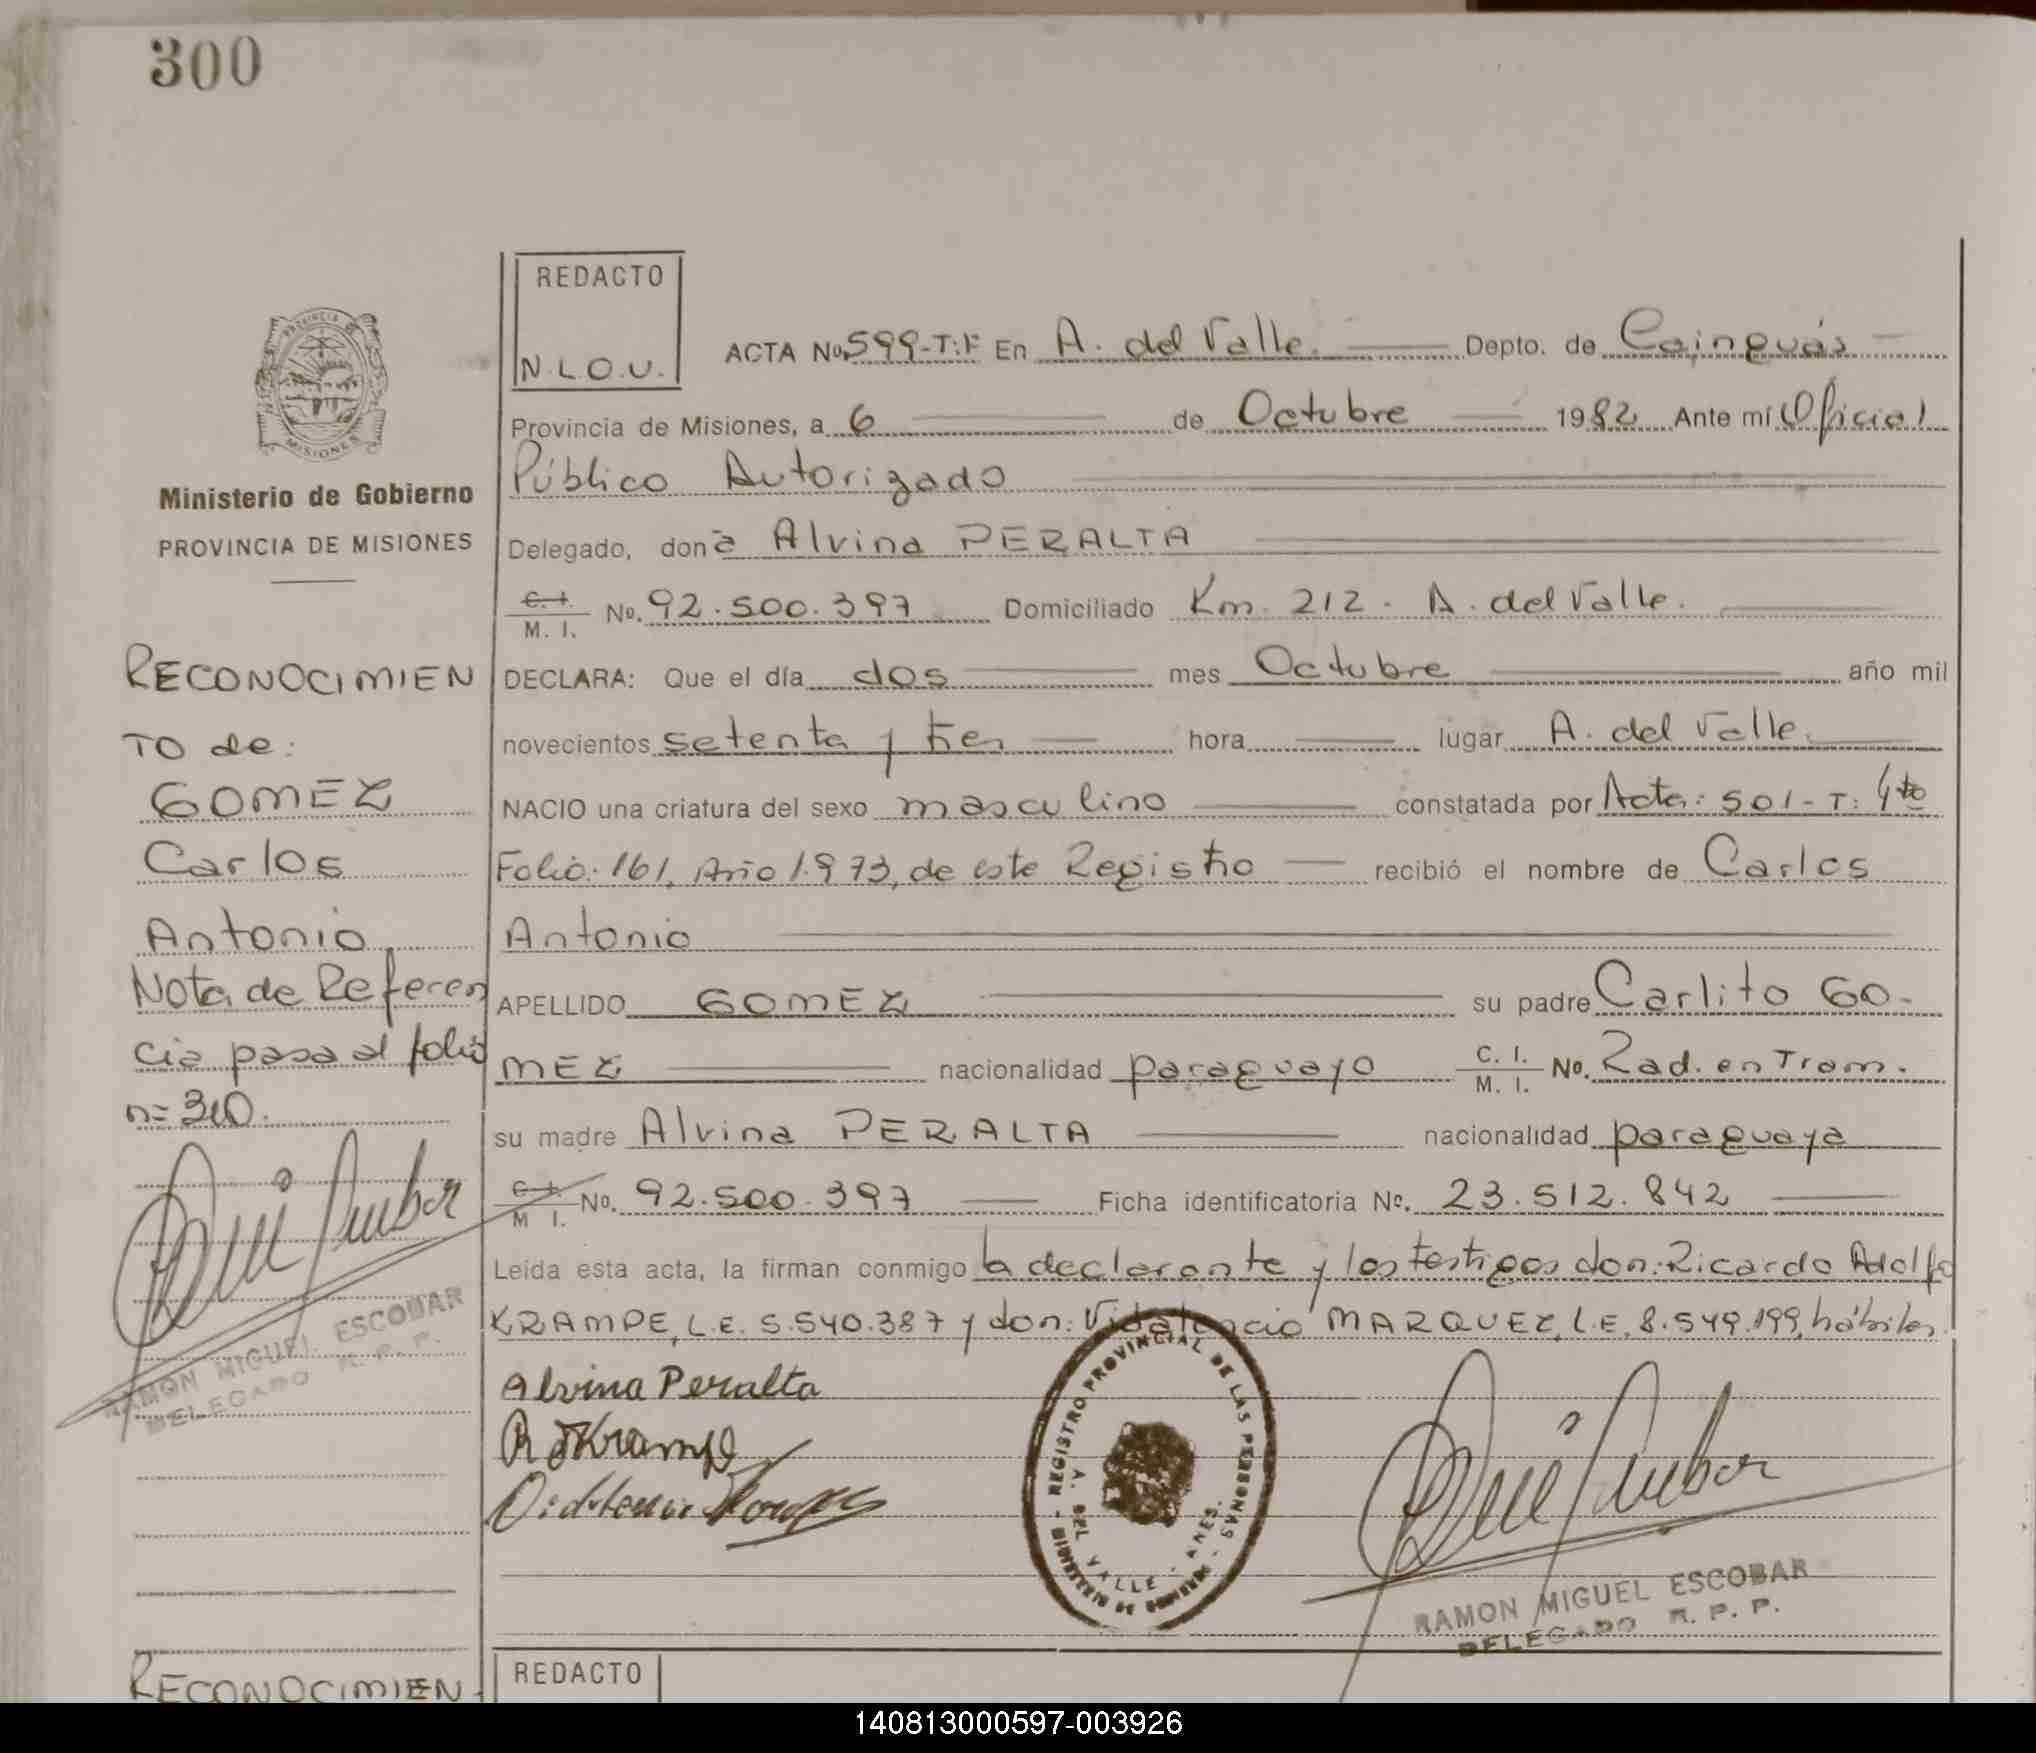 300
REDACTO
N.L.O.U.
ACTA No. 599-T:1º En A. del Valle. Depto. de Cainguás
Provincia de Misiones, a 6 de Octubre 1982 Ante mí Oficial
Público Autorizado
Delegado, don a Alvina PERALTA
C. I. / M. I. No. 92.500.397 Domiciliado Km. 212. A. del Valle.
DECLARA: Que el día dos mes Octubre año mil
novecientos setenta y tres hora lugar A. del Valle.
NACIO una criatura del sexo masculino constatada por Acta: 501-T: 4to
Folio: 161, Año 1.973, de este Registro recibió el nombre de Carlos
Antonio
APELLIDO GOMEZ su padre Carlito GO-
MEZ nacionalidad paraguayo C. I. / M. I. No. Rad. en Tram.
su madre Alvina PERALTA nacionalidad paraguaya
C. I. / M I. No. 92.500.397 Ficha identificatoria No. 23.512.842
Leída esta acta, la firman conmigo la declarante y los testigos don: Ricardo Adolfo
KRAMPE, L.E. 5.540.387 y don: MARQUEZ, L.E. 8.549.199, hábiles.
Alvina Peralta
R A Krampe
MINISTERIO DE GOBIERNO - REGISTRO PROVINCIAL DE LAS PERSONAS
A. DEL VALLE - MNES.
RAMON MIGUEL ESCOBAR
DELEGADO R. P. P.
PROVINCIA
MISIONES
Ministerio de Gobierno
PROVINCIA DE MISIONES
RECONOCIMIEN
TO de:
GOMEZ
Carlos
Antonio
Nota de Referen
cia pasa al folio
n= 310.
RAMON MIGUEL ESCOBAR
DELEGADO R. P. P.
RECONOCIMIEN-
REDACTO
140813000597-003926